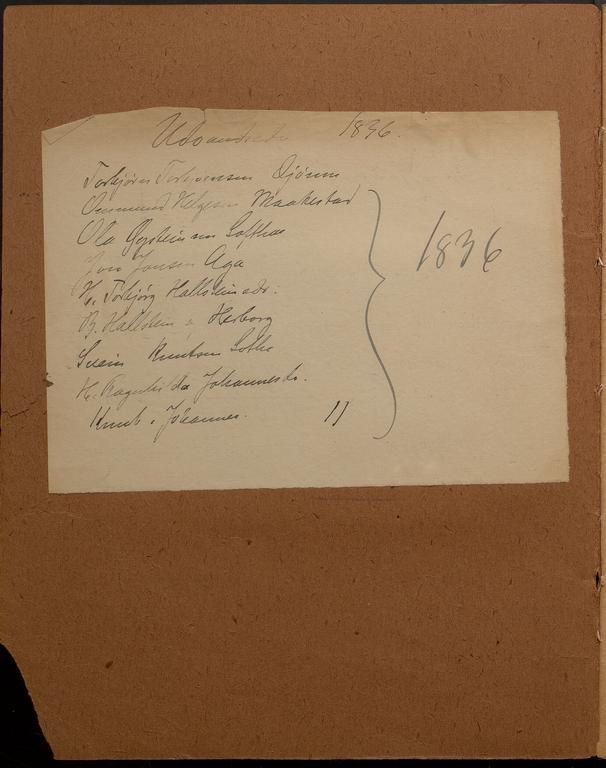 Udvandrede 1836.
Torbjörn Torbjörnsen Djönne
Aamund Helgesen Maakestad
Ola Øystein sen Lofthus
Jon Jonsen Aga
H. Torbjörg Hallsteinsdr.
B. Hallstein & Herborg
Svein Knutsen Lothe
H. Ragnhilda Johannesdr.
Knut & Johannes. 11
1836